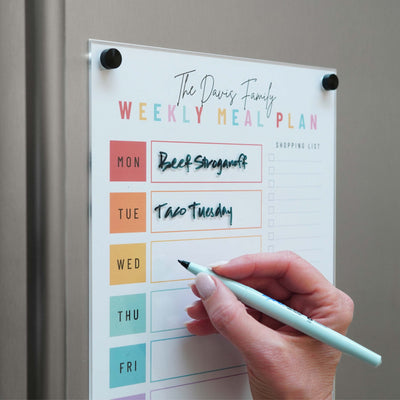 The Davis Family
WEEKLY MEAL PLAN
SHOPPING LIST
MON
Beef Stroganoff
TUE
Taco Tuesday
WED
THU
FRI